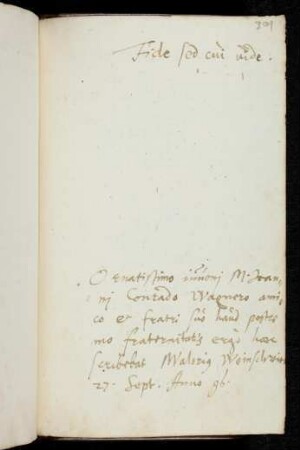 301
Fide sed cui vide.
Ornatissimo iuveni M. Joan-
ni Conrado Wagnero ami-
co et fratri suo haud postre-
mo fraternitatis ergo haec
scribebat
27. Sept. Anno 96.